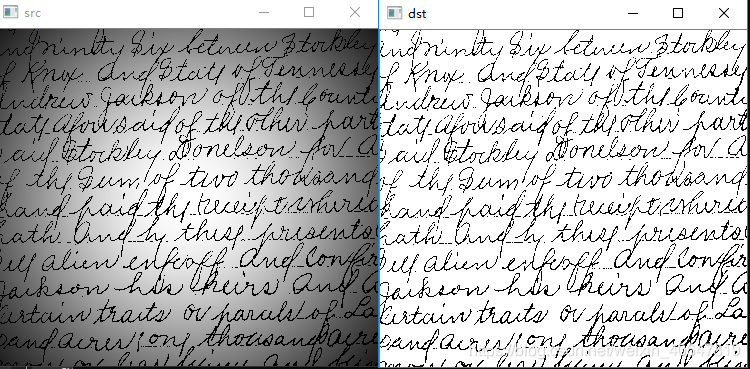 src
and ninity Six between Stockley
of Knox and State of Tennessey
Andrew Jackson of the Count
tate aforesaid of the other part
aul Stockley Donelson for a
of the Sum of two thousand
hand paid the receipt where
hath and by these presents
ell alien enfeoff and confir
Jackson his heirs and a
certain traits or parsels of La
sand acres one thousand acre
dst
and ninity Six between Stockley
of Knox and State of Tennessey
Andrew Jackson of the Count
tate aforesaid of the other part
aul Stockley Donelson for a
of the Sum of two thousand
hand paid the receipt where
hath and by these presents
ell alien enfeoff and confir
Jackson his heirs and a
certain traits or parsels of La
sand acres one thousand acre